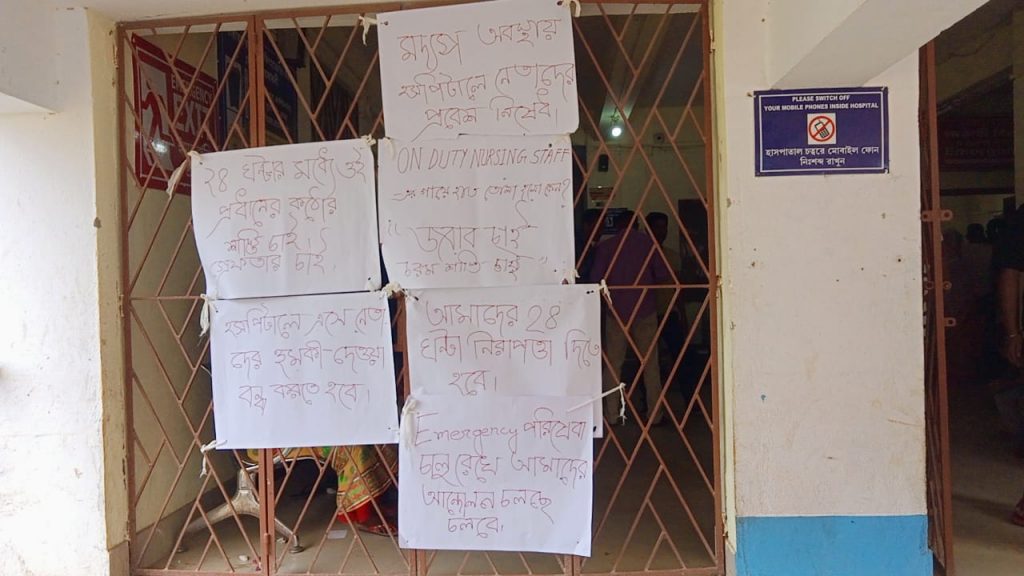 মদ্যপ অবস্থায়
হসপিটালে নেতাদের
প্রবেশ নিষেধ।
২৪ ঘন্টার মধ্যে ওই
প্রধানের কঠোর
শাস্তি চাই।
গ্রেফতার চাই।
ON DUTY NURSING STAFF
এর গায়ে হাত তোলা হলো কেন?
"জবাব চাই
চরম শাস্তি চাই"
হসপিটালে এসে নেতা
দের হুমকী-দেওয়া
বন্ধ করতে হবে।
আমাদের 24
ঘন্টা নিরাপত্তা দিতে
হবে।
Emergency পরিষেবা
চালু রেখে আমাদের
আন্দোলন চলছে
চলবে।
PLEASE SWITCH OFF
YOUR MOBILE PHONES INSIDE HOSPITAL
হাসপাতাল চত্বরে মোবাইল ফোন
নিঃশব্দ রাখুন